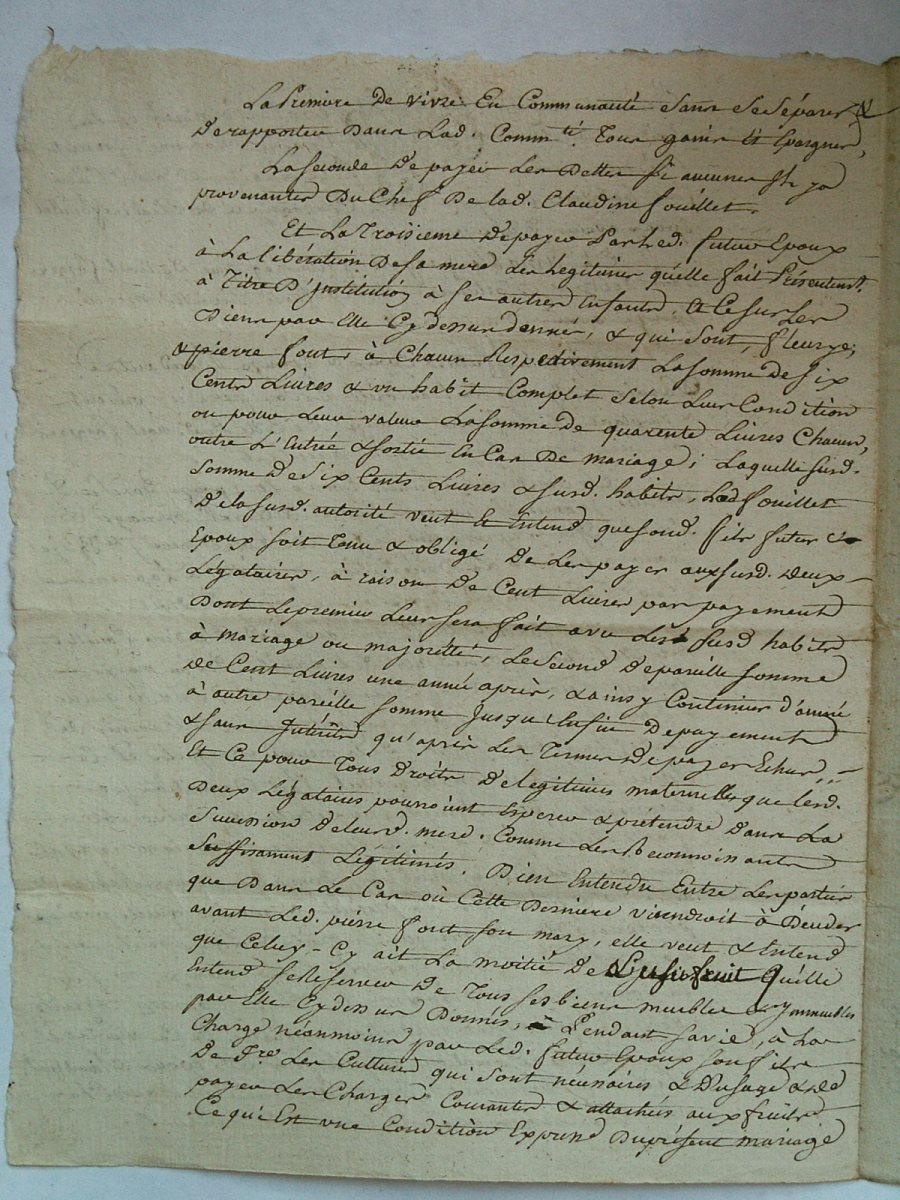 La Premiere De vivre En Communauté Sans Se Séparer &
De rapporter Dans Lad. Comm.té Tous gains Et Epargnes,
La Seconde De payer Les Dettes Si aucunes Il y a
provenantes Du Chef De lad. Claudine fouillet.
Et La Troisieme De payer Par Led. futur Epoux
à La libération De Sa mere Les legitimes qu'elle fait Présentem.t
à Titre D'Institution à Ses autres Enfants, A Ce Sur Les
Biens par Elle Cy dessus donnés, & qui Sont, fleurye,
& pierre font, à Chacun Respectivement La Somme De Six
Cents Livres & un habit Complet Selon Leur Condition
ou pour Leur valeur La Somme De quarente Livres Chacun,
outre L'Entrée & Sortie En Cas De mariage; Laquelle Surd.
Somme De Six Cents Livres & Surd. habits, Lad. fouillet
De la Surd. autorité veut & Entend que Sond. fils futur
Epoux Soit Tenu & obligé De Les payer aux Surd. Deux
Légataires, à raison De Cent Livres par payement
Dont Le premier Leur Sera fait avec Les Susd habits
à mariage ou majorette, Le Second De pareille Somme
De Cent Livres une année après, & ainsy Continuer d'année
à autre pareille Somme Jusqu'à Enfin De payement
& Sans Intérêts qu'après Les Termes De payer Echus,
Et Ce pour Tous Droits De legitimes maternelles que Lesd.
Deux Légataires pourroient Esperer & prétendre Dans La
Succession De leurd. mere, Comme Les Reconnoissant
Suffisament Légitimés. Bien Entendu Entre Les parties
que Dans Le Cas où Cette Derniere viendroit à Décéder
avant Led. pierre font Son mary, elle veut & Entend
que Celuy-Cy ait La moitié De L'usufruit Quélle
Entend Se Réserver De Tous Ses biens meubles & Immeubles
par Elle Cy dessus Donnés, Pendant Sa vie, à La
Charge néanmoins par Led. futur Epoux Son fils
De f.re Les Cultures qui Sont nécessaires & D'usage & De
payer Les Charges Courantes & attachées aux fruits
Ce qui Est une Condition Expresse Du présent mariage